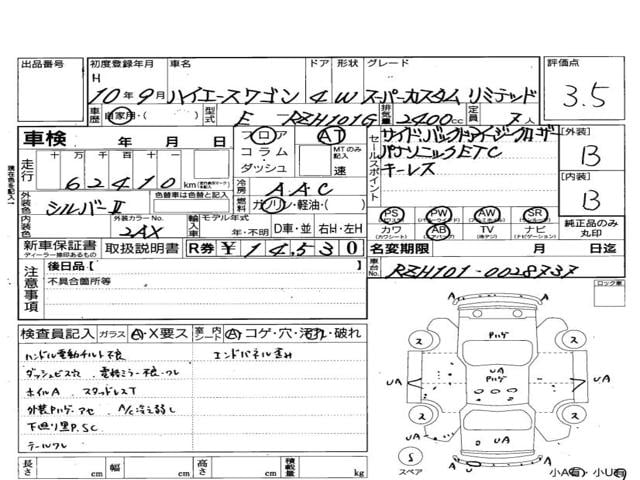 出品番号
初度登録年月 車名 ドア 形状 グレード 評価点
H
10年9月 ハイエースワゴン 4 W スーパーカスタム リミテッド 3.5
車歴 自家用・( ) 型式 E RZH101G 排気量 2400cc 定員 7人
車検 年 月 日
フロア コラム・ダッシュ
AT
MTのみ記入
速
セールスポイント
サイド、バックドアイージークローザー
パナソニックETC
キーレス
[外装]
B
[内装]
B
走行 十万 万 千 百 十 一
62410 km
冷房 AAC
燃料 ガソリン・軽油・( )
外装色 シルバーⅡ 色替車は色替と記入
内装色
外装カラー No.
2AX
輸入車 モデル年式
年・不明 D車・並 右H・左H
PS PW AW SR
カワ AB TV ナビ
純正品のみ丸印
新車保証書 取扱説明書 R券 ¥14,530
ディーラー捺印あるもの
名変期限 月 日迄
車台No. RZH101-0028737
注意事項
後日品【 】
不具合箇所等
ロック車
検査員記入 ガラス A・X要ス 室内シート A・コゲ・穴・汚れ・破れ
ハンドル電動チルト不良 エンドパネル歪み
ダッシュビス穴 電格ミラー不良・ワレ
ホイルA スタッドレスT
外装Pハゲ アセ A/C冷え弱し
下回り黒P.SC
テールワレ
Pハゲ
UA
UA
Pハゲ
UA
UA
UA
UA
S
スペア
A
U
小A有・小U有
長さ cm 幅 cm 高さ cm 積載量 kg